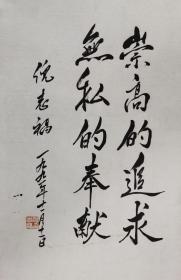 崇高的追求
無私的奉献
倪志福
一九九一年十一月十二日